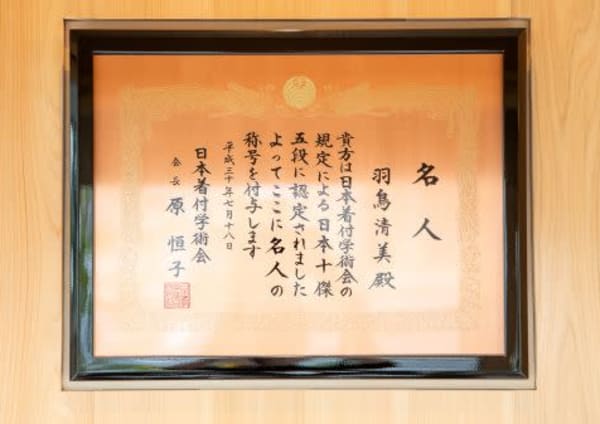 名人
羽鳥清美殿
貴方は日本着付学術会の
規定による日本十傑
五段に認定されました
よってここに名人の
称号を付与します
平成三十年七月十八日
日本着付学術会
会長 原恒子